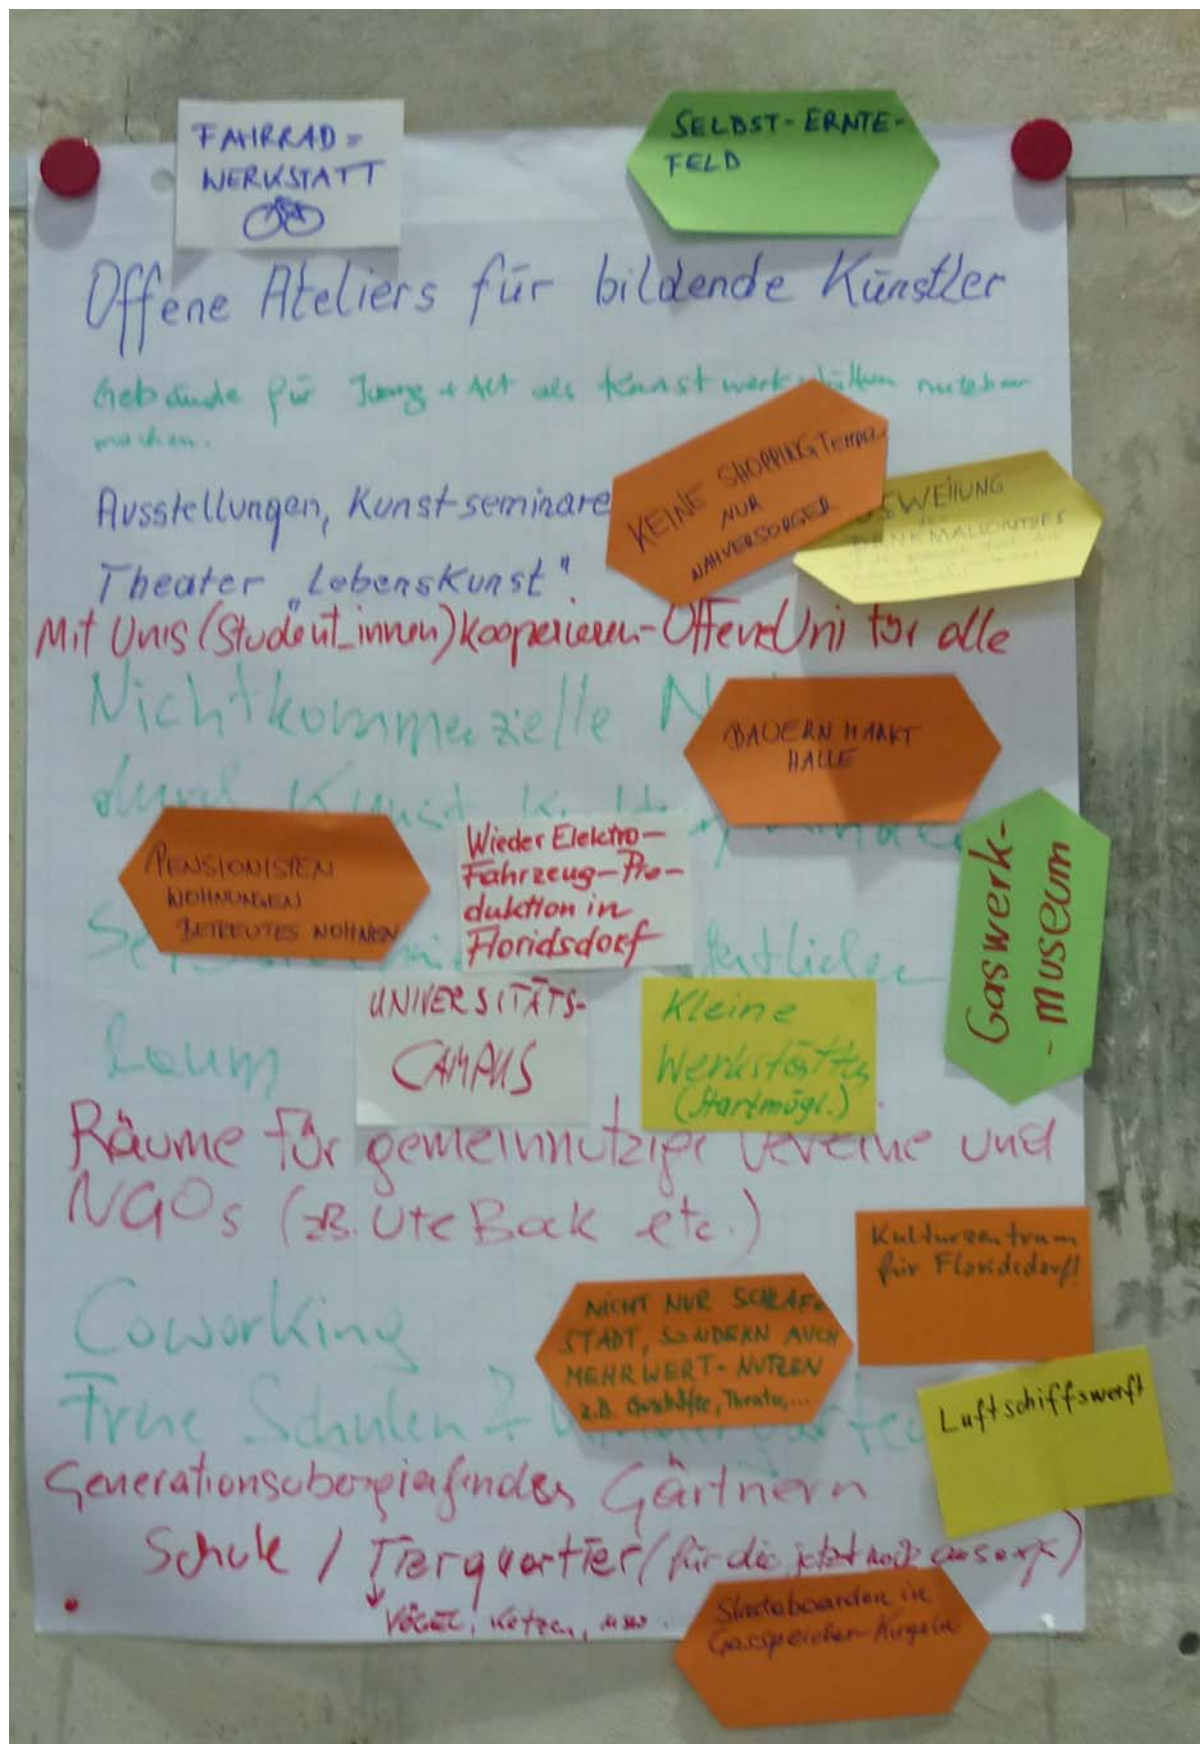 FAHRRAD=
WERKSTATT
SELBST-ERNTE-
FELD
Offene Ateliers für bildende Künstler
Gebäude für Jung + Alt als Kunstwerkstätten nutzbar
machen.
KEINE SHOPPING Tempel
NUR
NAHVERSORGER
Ausstellungen, Kunstseminare
Theater „Lebenskunst"
Mit Unis (Student_innen) kooperieren - Offene Uni für alle
Nichtkommerzielle
durch Kunst
BAUERN MARKT
HALLE
PENSIONISTEN
WOHNUNGEN
BETREUTES WOHNEN
Wieder Elektro-
Fahrzeug-Pro-
duktion in
Floridsdorf
Gaswerk-
-museum
Raum
UNIVERSITÄTS-
CAMPUS
Kleine
Werkstätten
(Startmögl.)
Räume für gemeinnützige Vereine und
NGOs (zB. Ute Bock etc.)
Kulturzentrum
für Floridsdorf!
Coworking
NICHT NUR SCHLAF=
STADT, SONDERN AUCH
MEHRWERT-NUTZEN
z.B. Geschäfte, Theater,...
Freie Schulen
Luftschiffswerft
Generationsübergreifendes Gärtnern
Schule / Tierquartier (für die jetzt noch
VÖGEL, Katzen, usw.
Skateboarden in
Gasspeicher-Kugeln